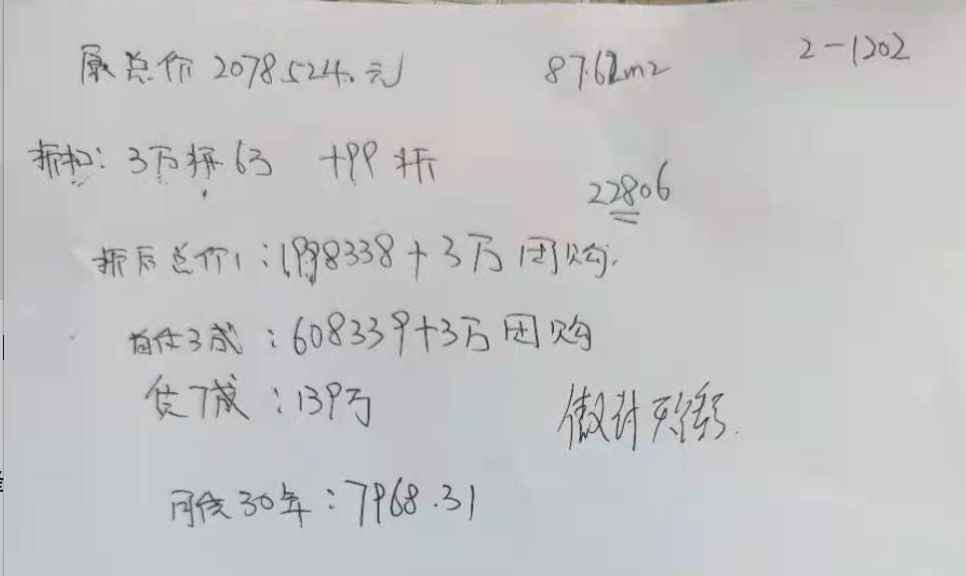 原总价 2078524.元 87.62m2 2-1202
折扣: 3万抵6万 +99折
22806
折后总价: 1998338+3万团购.
首付3成: 608339+3万团购
贷7成: 139万
月供30年: 7968.31